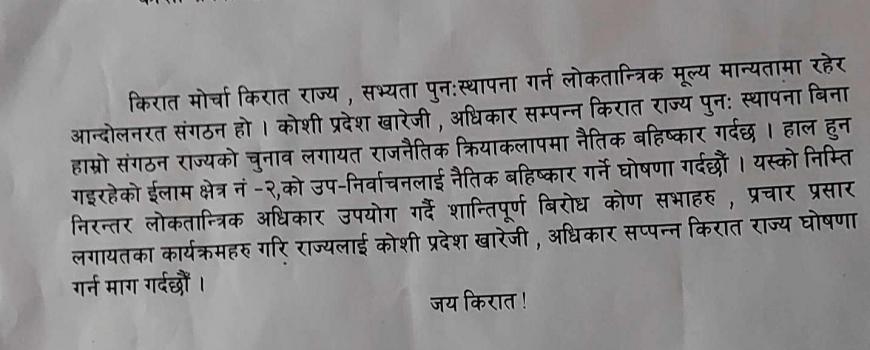 किरात मोर्चा किरात राज्य , सभ्यता पुन:स्थापना गर्न लोकतान्त्रिक मूल्य मान्यतामा रहेर
आन्दोलनरत संगठन हो । कोशी प्रदेश खारेजी , अधिकार सम्पन्न किरात राज्य पुन: स्थापना बिना
हाम्रो संगठन राज्यको चुनाव लगायत राजनैतिक क्रियाकलापमा नैतिक बहिष्कार गर्दछ । हाल हुन
गइरहेको ईलाम क्षेत्र नं -२,को उप-निर्वाचनलाई नैतिक बहिष्कार गर्ने घोषणा गर्दछौं । यस्को निम्ति
निरन्तर लोकतान्त्रिक अधिकार उपयोग गर्दै शान्तिपूर्ण बिरोध कोण सभाहरु , प्रचार प्रसार
लगायतका कार्यक्रमहरु गरि राज्यलाई कोशी प्रदेश खारेजी , अधिकार सप्पन्न किरात राज्य घोषणा
गर्न माग गर्दछौं ।
जय किरात !